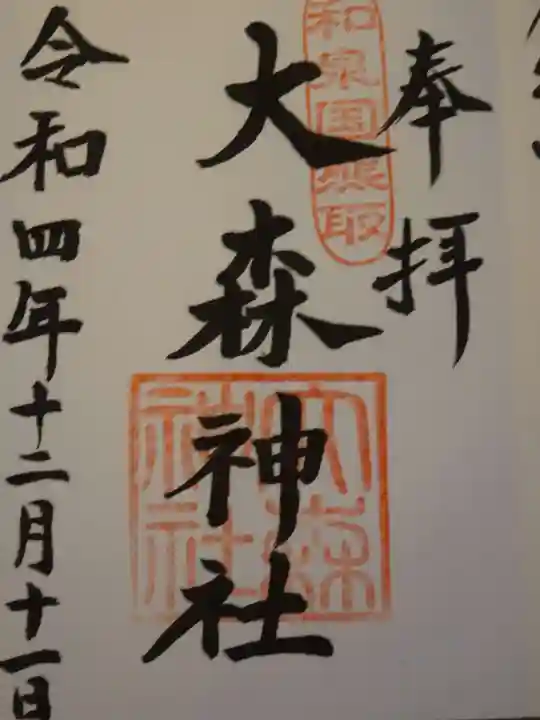 奉拝
和泉国熊取
大森神社
大森神社
令和四年十二月十一日